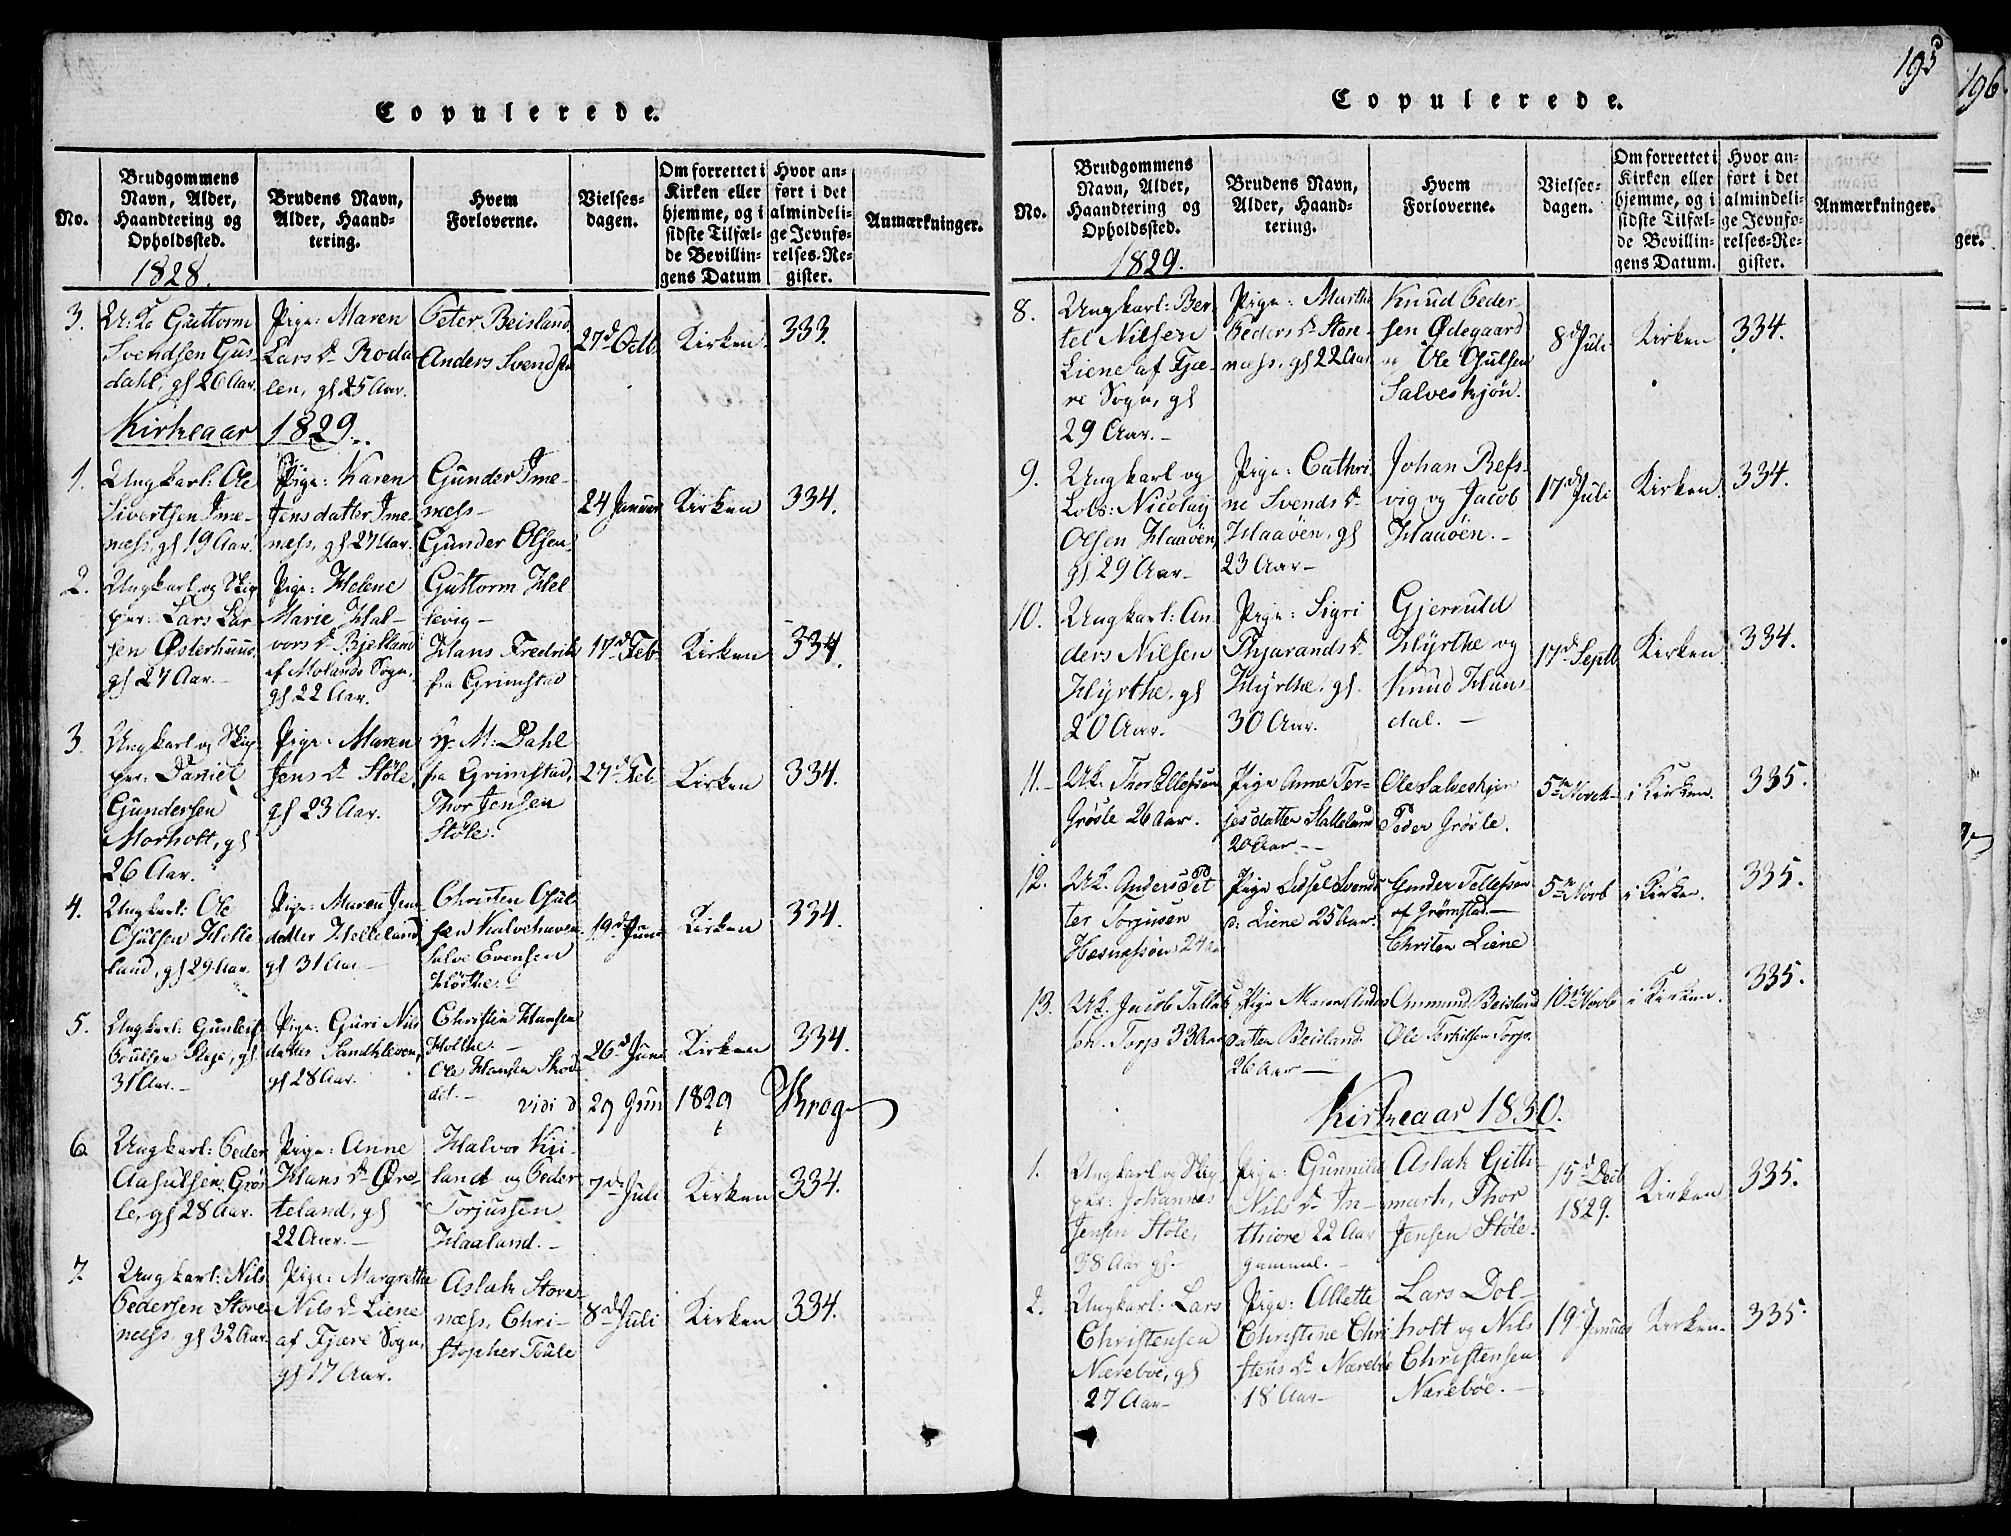 Copulerede.
No.
Brudgommens
Navn, Alder,
Haandtering og
Opholdssted.
1828.
Brudens Navn,
Alder, Haand-
tering.
Hvem
Forloverne.
Vielses-
dagen.
Om forrettet i
Kirken eller
hjemme, og i
sidste Tilfæl-
de Bevillin-
gens Datum
Hvor an-
ført i det
almindeli-
ge Jevnfø-
relses-Re-
gister.
Anmærkninger.
3.
Guttorm
Svendsen Gus-
dahl, gl 26 Aar.
Pige: Maren
Lars Dr Roda-
len, gl 25 Aar.
Peter Beisland
Anders Svendsen
27d Octb.
Kirken.
333.
Kirkeaar 1829.
1.
Ungkarl: Ole
Sivertsen Ime-
næss, gl 19 Aar.
Pige: Karen
Jensdatter Ime-
næss, gl 27 Aar.
Gunder Ime-
næss-
Gunder Olsen
24 Januar
Kirken
334.
2.
Ungkarl og Skip
per: Lars Lar
sen Østerhuus,
gl 27 Aar.-
Pige: Helene
Marie Hal-
vors Dr Bjelland
af Molands Sogn,
gl 22 Aar.
Guttorm Hel
levig-
Hans Fredrik
fra Grimstad
17d Feb
Kirken
334.
3.
Ungkarl og Skip
per: Daniel
Gundersen
Morholt, gl
26 Aar.
Pige: Maren
Jens Dr Støle,
gl 23 Aar.
M: Dahl
fra Grimstad,
Thor Jensen
Støle.
27d Feb
Kirken
334.
4.
Ungkarl: Ole
Osulsen Helle
land, gl 29 Aar.
Pige: Maren Jens
datter Helleland
gl 31 Aar-
Christen Osul
sen Kalvehaven
Salve Evensen
Hørthe.
19d Juni
Kirken
334.
5.
Ungkarl: Gunleif
gl
31 Aar.-
Pige: Guri Nils
datter Sandkleven,
gl 28 Aar.
Christen Hansen
Holthe.-
Ole Hansen
26d Juni
Kirken
334.
vidi d. 29 Juni 1829 Krog
6.
Ungkarl: Peder
Aasulsen Grøs
le, gl 28 Aar.
Pige: Anne
Hans Dr Øve-
teland, gl
22 Aar.-
Halvor Kii-
land og Peder
Torjussen
Haaland.-
7d Juli
Kirken
334.
7.
Ungkarl: Nils
Pedersen Store
næss gl 32 Aar.
Pige: Margrethe
Nils Dr Liene
af Fjære Sogn,
gl 17 Aar.
Aslak Store-
næss, Chri-
stopher
8d Juli
Kirken
334.
195
Copulerede.
No.
Brudgommens
Navn, Alder,
Haandtering og
Opholdssted.
1829.
Brudens Navn,
Alder, Haand-
tering.
Hvem
Forloverne.
Vielses-
dagen.
Om forrettet i
Kirken eller
hjemme, og i
sidste Tilfæl-
de Bevillin-
gens Datum.
Hvor an-
ført i det
almindeli-
ge Jevnfø-
relses-Re-
gister.
Anmærkninger.
8.
Ungkarl: Ber-
tel Nilsen
Liene af Fjæ-
re Sogn, gl
29 Aar.-
Pige: Marthe
Peders Dr Stor-
næss, gl 22 Aar
Knud Peder-
sen Ødegaard
Ole Osulsen
Salveskjøn.
8d Juli
Kirken
334.
9.
Ungkarl og
Lots: Nicolay
Olsen Haaøen,
gl 29 Aar-
Pige: Cathri
ne Svends Dr
Haaøen, gl
23 Aar-
Johan Refs-
vig og Jacob
Haaøen.-
17d Juli
Kirken.
334.
10.
Ungkarl: An
ders Nilsen
Hyrthe, gl
20 Aar.
Pige: Sigri
Thjarands Dr
Hyrthe, gl
30 Aar.
Gjeruld
Hyrthe og
Knud Hun-
dal.-
17d Septb
Kirken
334.
11.
Uk. Thor Ellefsen
Grøsle 26 Aar.
Pige Anne Ter-
jesdatter Stalleland
20 Aar-
Ole Salveskjøn
Peder Grøsle.
5te Novbr
i Kirken.
335.
12.
Uk. Anders Pet
ter Torjusen
24 Aar
Pige Sidsel Svends
d: Liene 25 Aar.
Gunder Tellefsen
af Grømstad.-
Christen Liene
5te Novb
i Kirken.
335.
13.
Uk. Jacob Tallak
sen. Torp 33 Aar
Pige Maren
datter Beisland.
26 Aar-
Ommund Beisland
Ole Terkilsen Torp.
10de Novb
i Kirken.
335.
Kirkeaar 1830.
1.
Ungkarl og Skip
per: Johannes
Jensen Støle,
38 Aar gl.-
Pige: Gunnild
Nils Dr In-
thiore 22 Aar
gammel.-
Aslak Gith-
mark, Thor
Jensen Støle.
15d Decb
1829.
Kirken
335.
2.
Ungkarl: Lars
Christensen
Nærebøe, gl
27 Aar-
Pige: Allette
Christine Chri
stens Dr Nærebøe
18 Aar-
Lars Dol-
holt og Nils
Christensen
Nærebøe.-
19d Januar
Kirken.
335.
196.
ger.